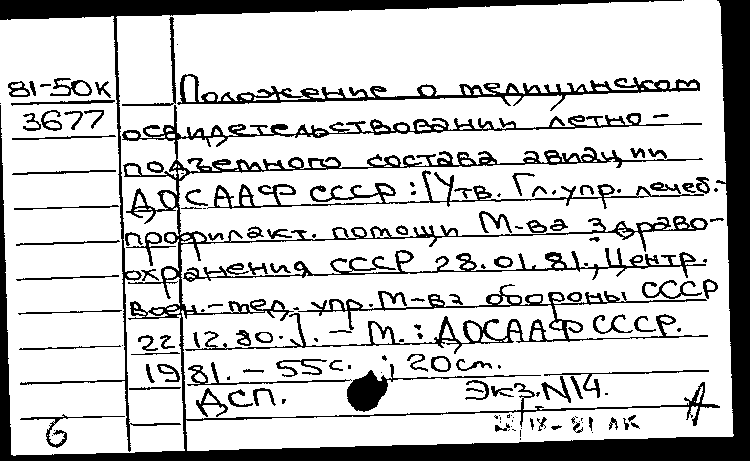 81-50к Положение о медицинском
3677 освидетельствовании летно-
подъемного состава авиации
ДОСААФ СССР: [Утв. Гл. упр. лечеб.-
профилакт. помощи М-ва здраво-
охранения СССР 28.01.81., Центр.
воен.-мед. упр. М-ва обороны СССР
22.12.80.]. - М.: ДОСААФ СССР.
1981. - 55с. ; 20см.
ДСП. Экз. N14.
6 18-81 ЛК А